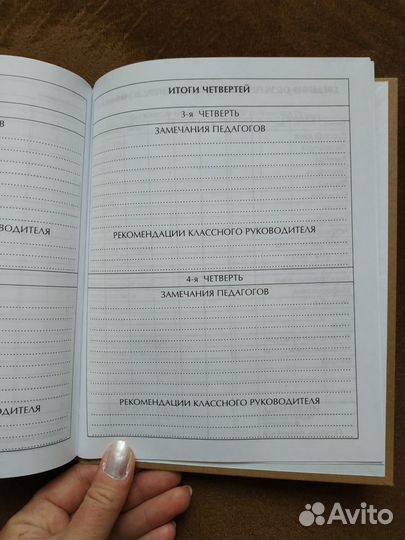 ИТОГИ ЧЕТВЕРТЕЙ
3-я ЧЕТВЕРТЬ
ЗАМЕЧАНИЯ ПЕДАГОГОВ
РЕКОМЕНДАЦИИ КЛАССНОГО РУКОВОДИТЕЛЯ
4-я ЧЕТВЕРТЬ
ЗАМЕЧАНИЯ ПЕДАГОГОВ
РЕКОМЕНДАЦИИ КЛАССНОГО РУКОВОДИТЕЛЯ
Avito